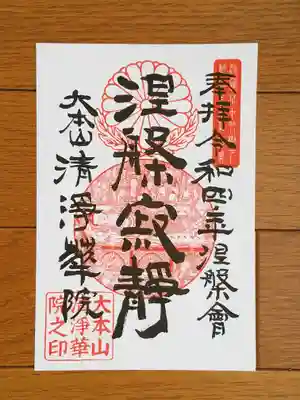 奉拝令和四年涅槃會
涅槃寂静
大本山清浄華院
大本山
清浄華
院之印